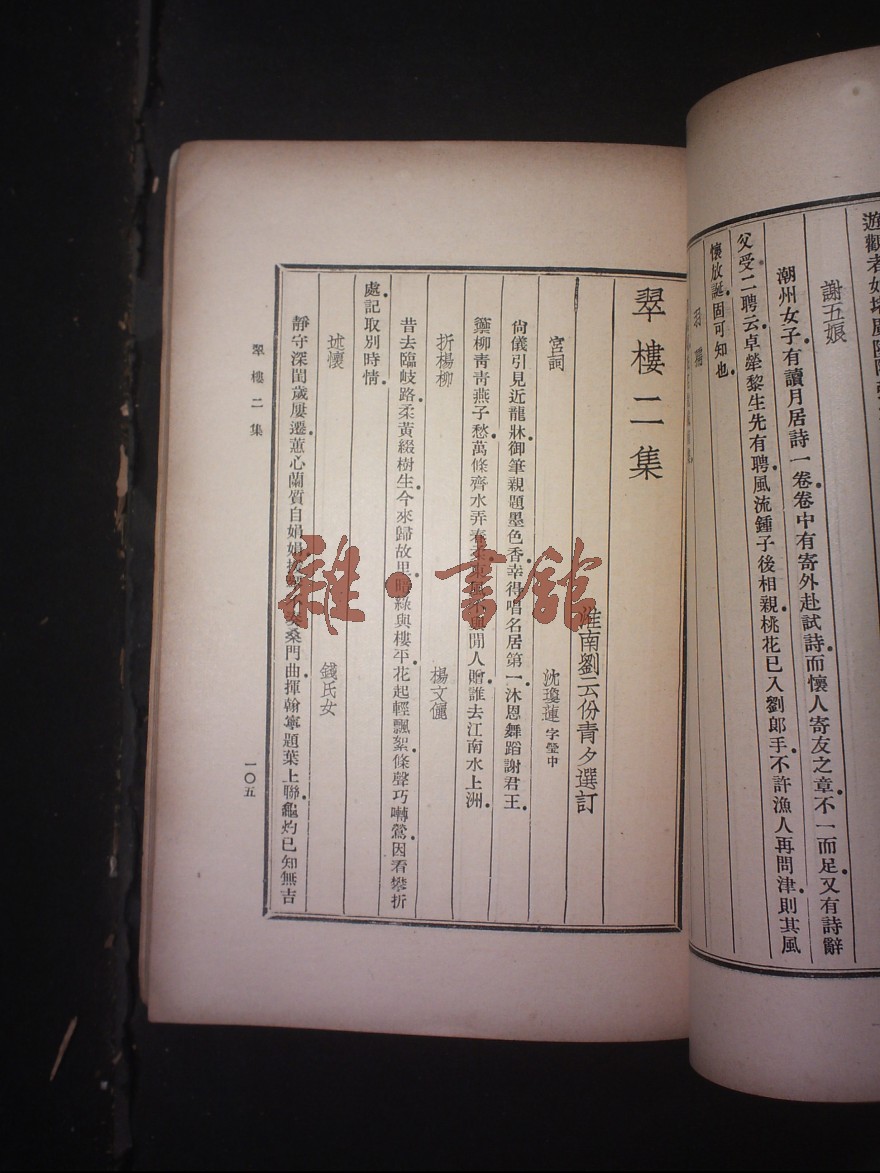 遊觀者如堵
謝五娘
潮州女子有讀月居詩一卷卷中有寄外赴試詩而懷人寄友之章不一而足又有詩辭
父受二聘云卓犖黎生先有聘風流鍾子後相親桃花已入劉郎手不許漁人再問津則其風
懷放誕固可知也
翠樓二集
淮南劉云份青夕選訂
宮詞 沈瓊蓮 字瑩中
尙儀引見近龍牀御筆親題墨色香幸得唱名居第一沐恩舞蹈謝君王
籞柳靑靑燕子愁萬條齊水弄春柔東風不與閒人贈誰去江南水上洲
折楊柳 楊文儷
昔去臨岐路柔黃綴樹生今來歸故里暗綠與樓平花起輕飄絮條聲巧囀鶯因看攀折
處記取別時情
述懷 錢氏女
靜守深閨歲屢遷蕙心蘭質自娟娟桑門曲揮翰寧題葉上聯龜灼已知無吉
翠樓二集
一〇五
雜·書館